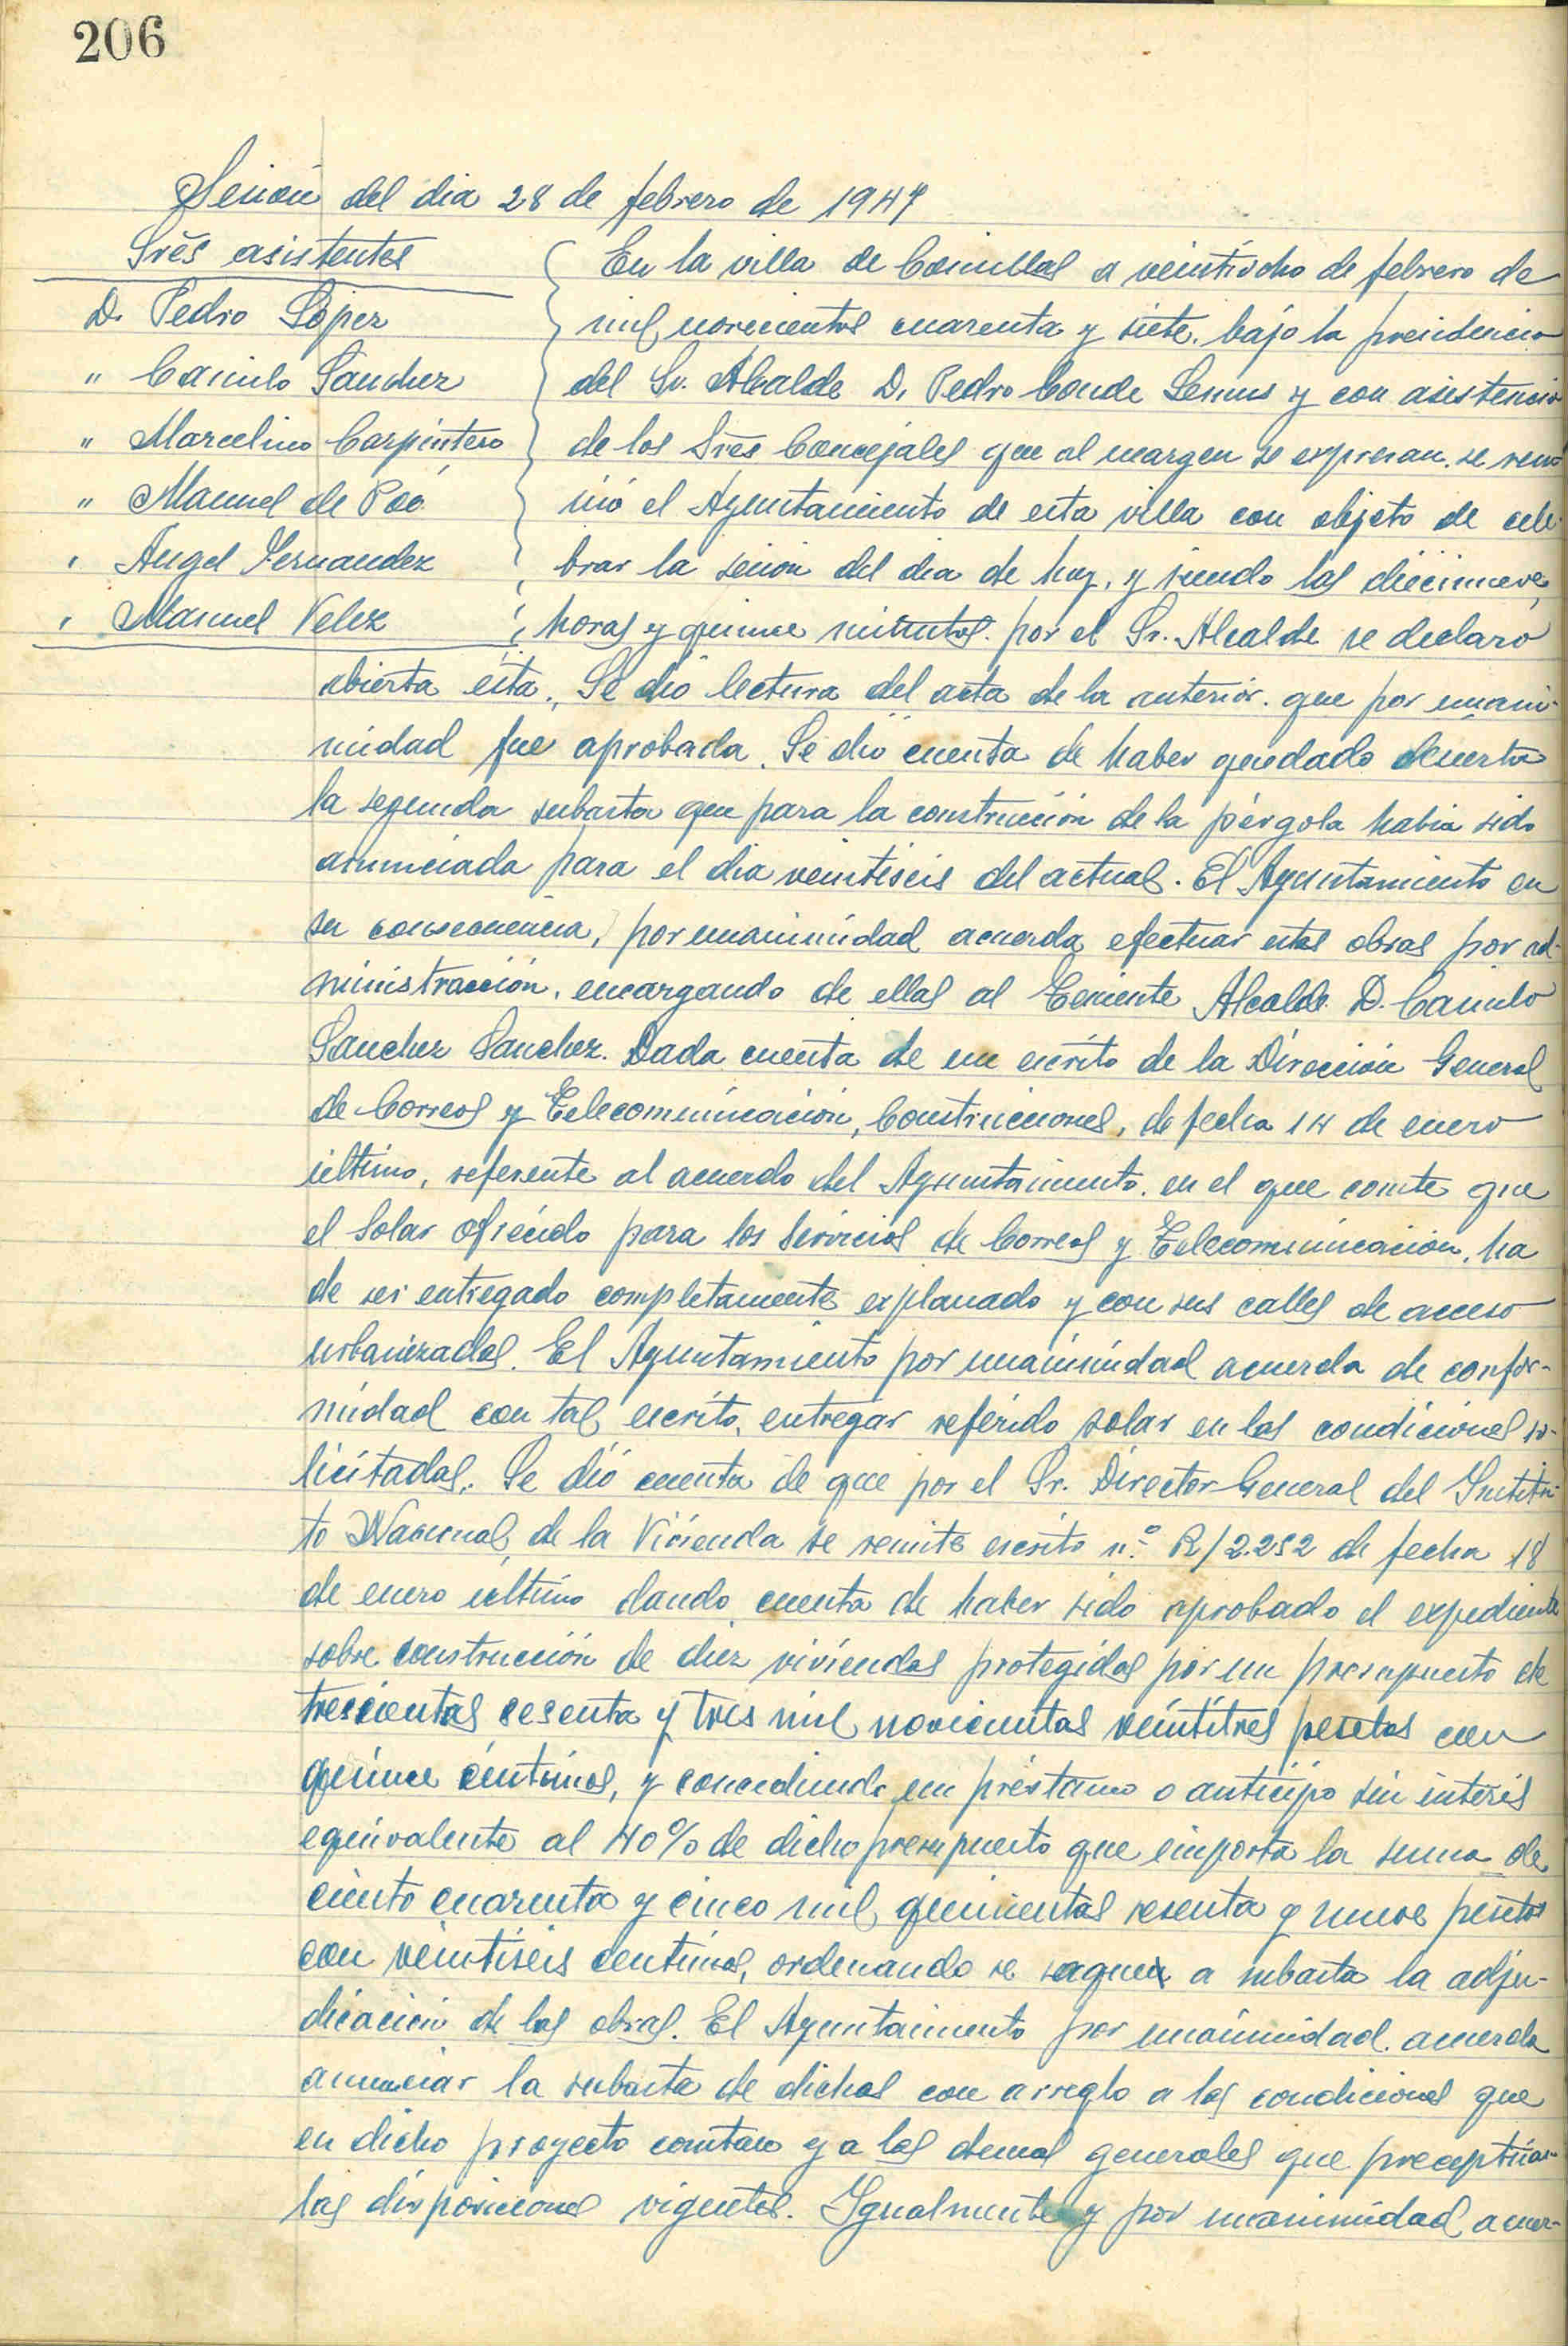 206
Sesión del dia 28 de febrero de 1947
Sres asistentes
D. Pedro López
" Camilo Sanchez
" Marcelino Carpintero
" Manuel de Poó
" Angel Fernandez
" Manuel Velez
En la villa de Comillas a veintiocho de febrero de
mil novecientos cuarenta y siete, bajo la presidencia
del Sr. Alcalde D. Pedro Conde Lemus y con asistencia
de los Sres Concejales que al margen se expresan, se reu
nió el Ayuntamiento de esta villa con objeto de cele-
brar la sesion del dia de hoy, y siendo las diecinueve
horas y quince minutos, por el Sr. Alcalde se declaró
abierta ésta. Se dió lectura del acta de la anterior, que por unani-
midad fue aprobada. Se dió cuenta de haber quedado desierta
la segunda subasta que para la construcción de la pérgola habia sido
anunciada para el dia veintiseis del actual. El Ayuntamiento en
su consecuencia, por unanimidad acuerda efectuar estas obras por ad-
ministracción, encargando de ellas al Teniente Alcalde D. Camilo
Sanchez Sanchez. Dada cuenta de un escrito de la Dirección General
de Correos y Telecomunicación, Construcciones, de fecha 14 de enero
último, referente al acuerdo del Ayuntamiento, en el que conste que
el solar ofrecido para los servicios de Correos y Telecomunicación, ha
de ser entregado completamente explanado y con sus calles de acceso
urbanizadas. El Ayuntamiento por unanimidad acuerda de confor-
midad con tal escrito, entregar referido solar en las condiciones so-
licitadas. Se dió cuenta de que por el Sr. Director General del Institu-
to Nacional de la Vivienda se remite escrito n.º R/2.252 de fecha 18
de enero último dando cuenta de haber sido aprobado el expediente
sobre construcción de diez viviendas protegidas por un presupuesto de
trescientas sesenta y tres mil novecientas veintitres pesetas con
quince céntimos, y concediendo un préstamo o anticipo sin interés
equivalente al 40% de dicho presupuesto que importa la suma de
ciento cuarenta y cinco mil quinientas sesenta y nueve pesetas
con veintiseis centimos, ordenando se saquen a subasta la adju-
dicación de las obras. El Ayuntamiento por unanimidad, acuerda
anunciar la subasta de dichas con arreglo a las condiciones que
en dicho proyecto constan y a las demas generales que preceptúan
las disposiciones vigentes. Igualmente y por unanimidad acuer-